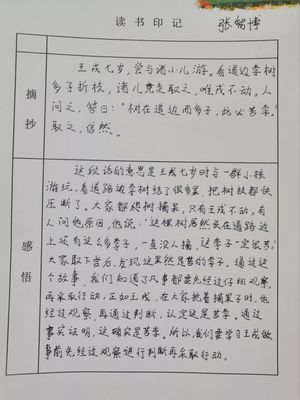 读书印记
张智博
摘抄
王戎七岁，尝与诸小儿游。看道边李树
多子折枝，诸儿竞走取之，唯戎不动。人
问之，答曰：“树在道边而多子，此必苦李。”
取之，信然。
感悟
这段话的意思是王戎七岁时与一群小孩
游玩，看道路边李树结了很多果，把树枝都快
压断了。大家都爬树摘果，只有王戎不动，有
人问他原因，他说：“这棵树居然长在道路边
上还有这么多李子，一直没人摘，这李子一定很苦。”
大家取下尝后，发现这果然是苦的李子。通过这
个故事，我们知道了凡事都要先经过仔细观察，
再采取行动，正如王戎，在大家抢着摘果子时，他
经过观察，再通过判断，认定这是苦李。通过
事实证明，这确实是苦李。所以，我们要学习王戎做
事前先经过观察进行判断再采取行动。